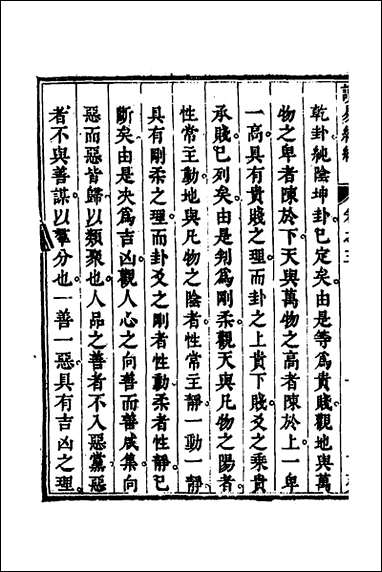 乾卦純陰坤卦已定矣由是等爲貴賤觀地與萬
物之卑者陳於下天與萬物之高者陳於上一卑
一高具有貴賤之理而卦之上貴下賤爻之乘貴
承賤已列矣由是判爲剛柔觀天與凡物之陽者
性常主動地與凡物之陰者性常主靜一動一靜
具有剛柔之理而卦爻之剛者性動柔者性靜已
斷矣由是决爲吉凶觀人心之向善而善咸集向
惡而惡皆歸以類聚也人品之善者不入惡黨惡
者不與善謀以羣分也一善一惡具有吉凶之理